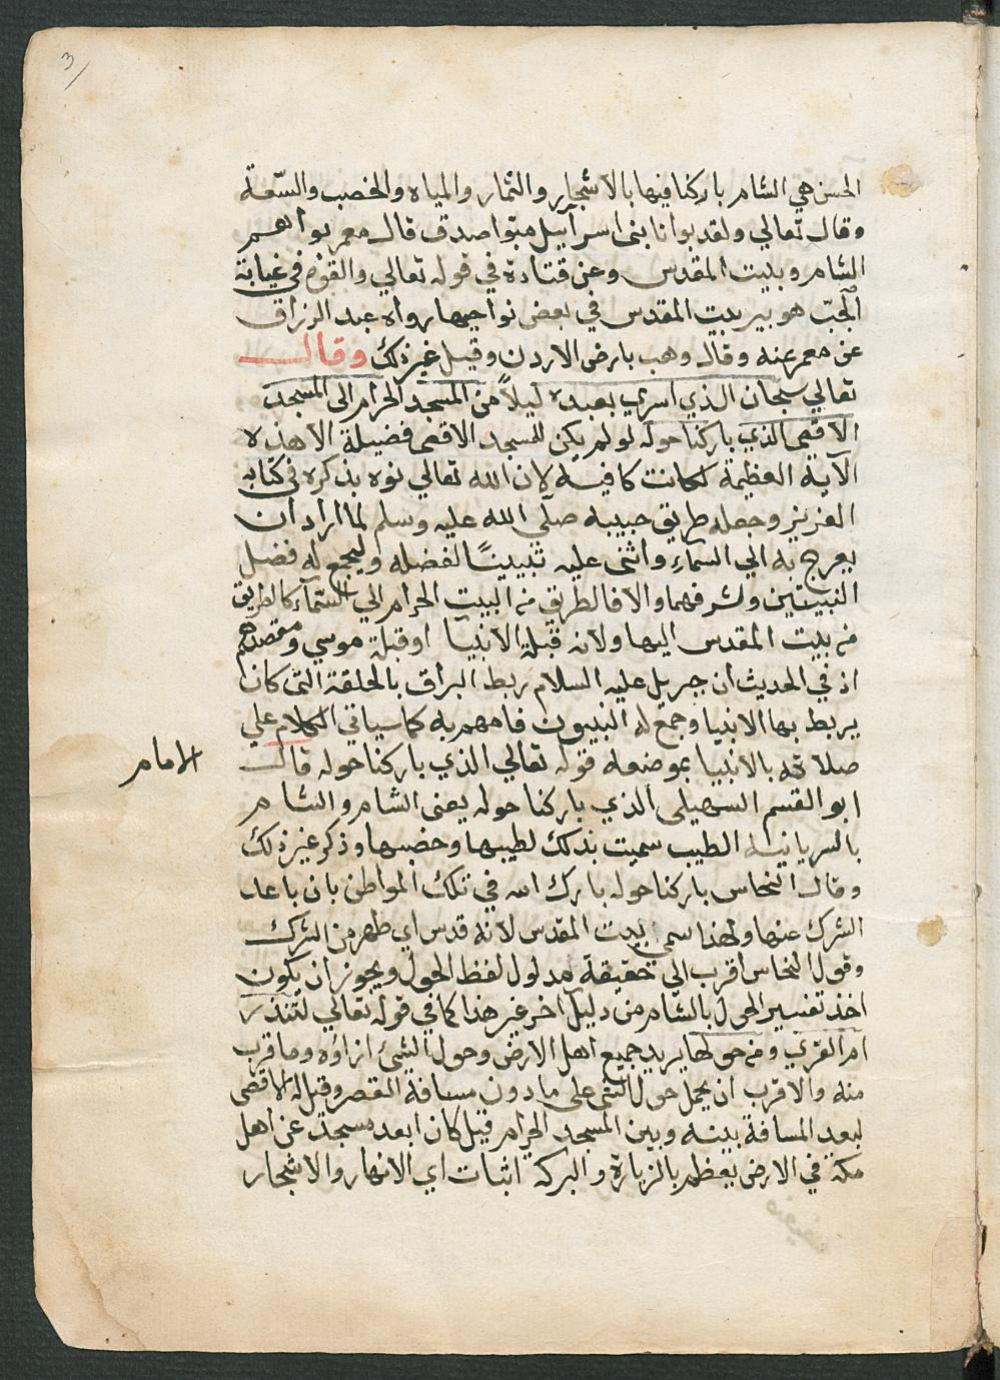 3
الحسن هي الشام باركنا فيها بالاشجار والثمار والمياه والخصب والسّعة
وقال تعالي ولقد بوانا بنى اسرآييل مبّوا صدق قال معمر بوأهم
الشام وبيت المقدس وعن قتادة في قوله تعالي والقوْه في غيابة
الجبّ هو بير بيت المقدس في بعض نواحيها رواه عبد الرزاق
عن معمر عنه وقال وهب بارض الاردن وقيل غير ذلك وقال
تعالي سبحان الذي اسري بعبده ليلاً من المسجد الحرام الى المسجد
الاقصى الذي باركنا حوله لو لم يكن للمسجد الاقصى فضيلة الا هذه
الآية العظيمة لكانت كافية لان الله تعالي نوه بذكره في كتابه
العزيز وجعله طريق حبيبه صلّى الله عليه وسلم لما اراد ان
يعرج به الي السماء واثنى عليه تبيينًا لفضله وليجمع له فضل
النبيتين وشرفهما والا فالطريق من البيت الحرام الي السمآء كالطريق
من بيت المقدس اليها ولانه قبلة الانبيآ او قبلة موسي ومقصدهم
اذ في الحديث ان جبريل عليه السلام ربط البراق بالحلقة التى كان
يربط بها الانبيا وجمع له النبيون فامهم به كما سياتي الكلام علي
صلاته بالانبيا بموضعه قوله تعالي الذي باركنا حوله قال
الامام
ابو القسم السهيلى الذي باركنا حوله يعنى الشام والشام
بالسريانية الطيب سميت بذلك لطيبها وخصبها وذكر غير ذلك
وقال النحاس باركنا حوله بارك الله في تلك المواطن بان باعد
الشرك عنها ولهذا سمي بيت المقدس لانه قدس اي طهر من الشرك
وقول النحاس اقرب الي حقيقة مدلول لفظ الحول ويجوز ان يكون
اخذ تفسير الحول بالشام من دليل آخر غير هذا كما في قوله تعالي لتنذر
ام القرّي ومن حولها يريد جميع اهل الارض وحول الشئ ازاؤه وما قرب
منه والاقرب ان يحمل حول الشى على ما دون مسافة القصر وقيل له الاقصى
لبعد المسافة بينه وبين المسجد الحرام قيل كان ابعد مسجد عن اهل
مكة في الارض يعظم بالزيارة والبركة اثبات اي الانهار والاشجار